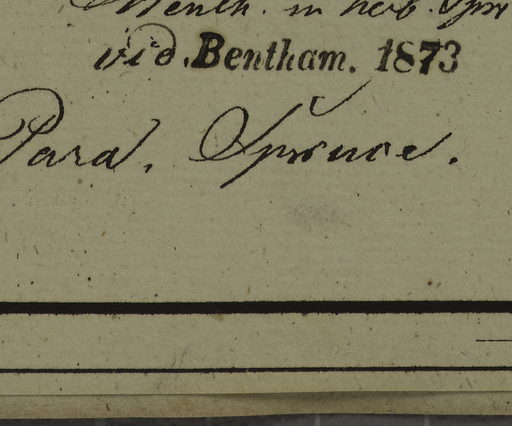 Benth. in herb. Spru
vid. Bentham. 1873
Para, Spruce.